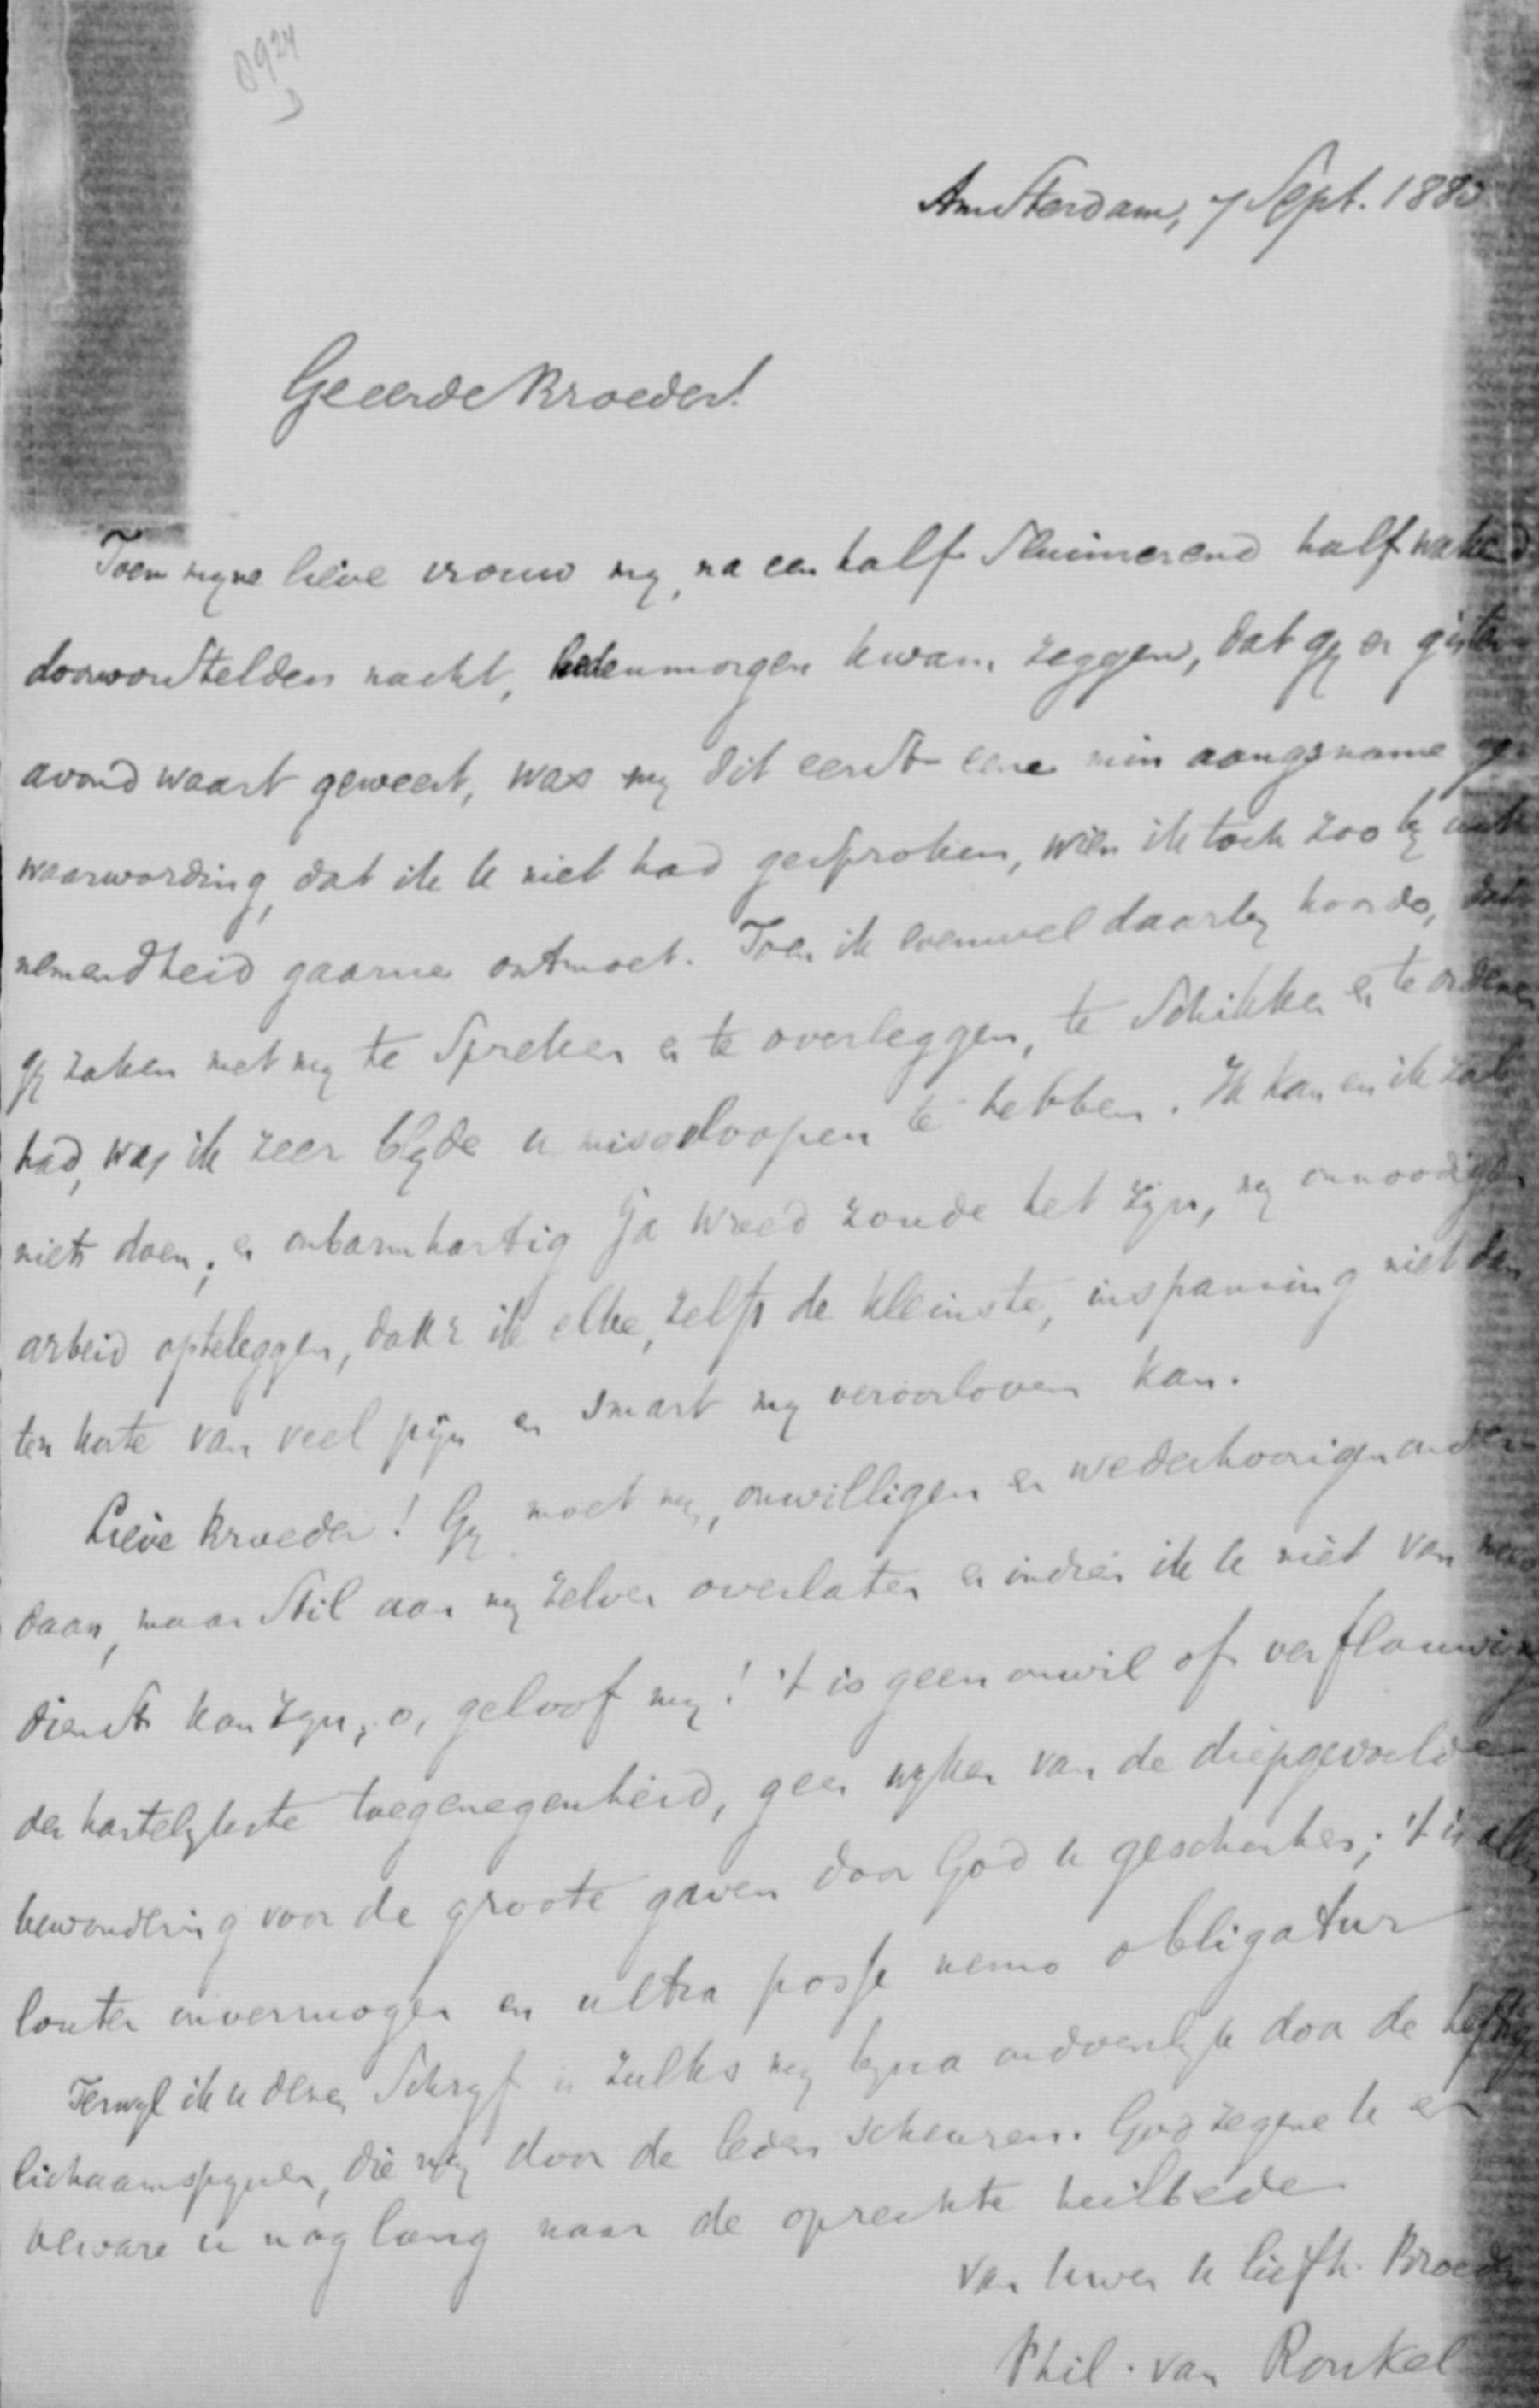 0924
Amsterdam, 7 Sept. 1883
Geeerde Broeder!
Toen myne lieve vrouw my, na een half sluimerend half wakend
doorworstelden nacht, hedenmorgen kwam zeggen, dat gy er gister
avond waart geweest, was my dit eerst eene min aangename ge
waarwording, dat ik U niet had gesproken, wien ik toch zoo by uit
nemendheid gaarne ontmoet. Toen ik evenwel daarby hoorde, dat
gy zaken met my te spreken en te overleggen, te schikken en te ordenen
had, was ik zeer blyde U misgeloopen te hebben. Ik kan en ik zal
niets doen; en onbarmhartig ja wreed zoude het zyn, my onnoodigen
arbeid opteleggen, daar ik elke, zelfs de kleinste, inspanning niet dan
ten koste van veel pijn en smart my veroorloven kan.
Lieve Broeder! Gy moet my, onwilligen en wederhoorigen onder
daan, maar stil aan my zelven overlaten en indien ik U niet van meer
dienst kan zyn, o, geloof my! 't is geen onwil of verflauwing
der hartelykste toegenegenheid, geen wyken van de diepgevoelde
bewondering voor de groote gaven door God U geschonken; 't is alles
louter onvermogen en ultra posse nemo obligatur
Terwyl ik U dezen schryf is zulks my byna ondoenlyk door de heftige
lichaamspynen, die my door de leden scheuren. God zegene U en
beware U nog lang naar de oprechte heilbede
van Uwen U liefh. Broeder
Phil. van Ronkel